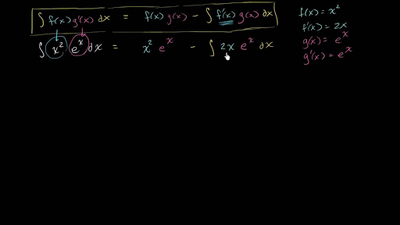 ∫ f(x) g'(x) dx = f(x) g(x) − ∫ f'(x) g(x) dx
∫ x² eˣ dx = x² eˣ − ∫ 2x eˣ dx
f(x) = x²
f'(x) = 2x
g(x) = eˣ
g'(x) = eˣ